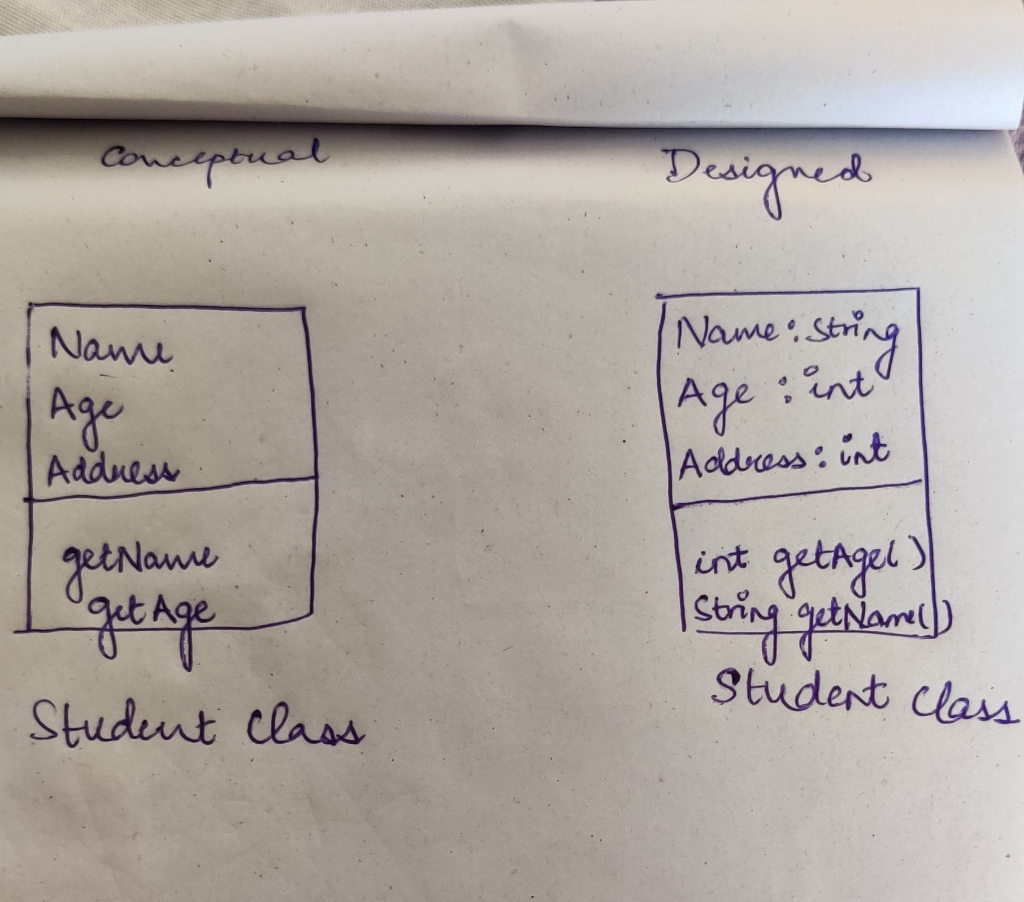 Conceptual
Name
Age
Address
getName
getAge
Student Class
Designed
Name : String
Age : int
Address : int
int getAge()
String getName()
Student Class